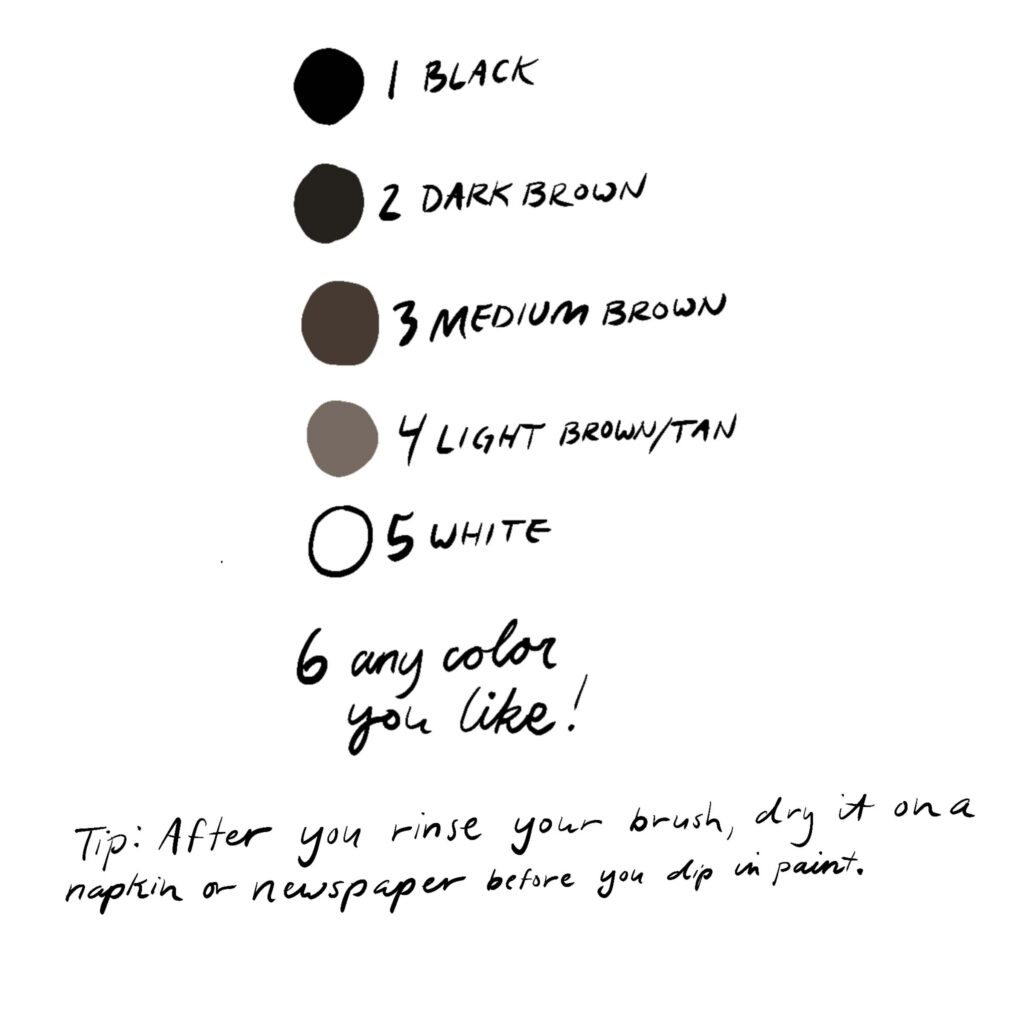 1 BLACK
2 DARK BROWN
3 MEDIUM BROWN
4 LIGHT BROWN/TAN
5 WHITE
6 any color
you like!
Tip: After you rinse your brush, dry it on a
napkin or newspaper before you dip in paint.